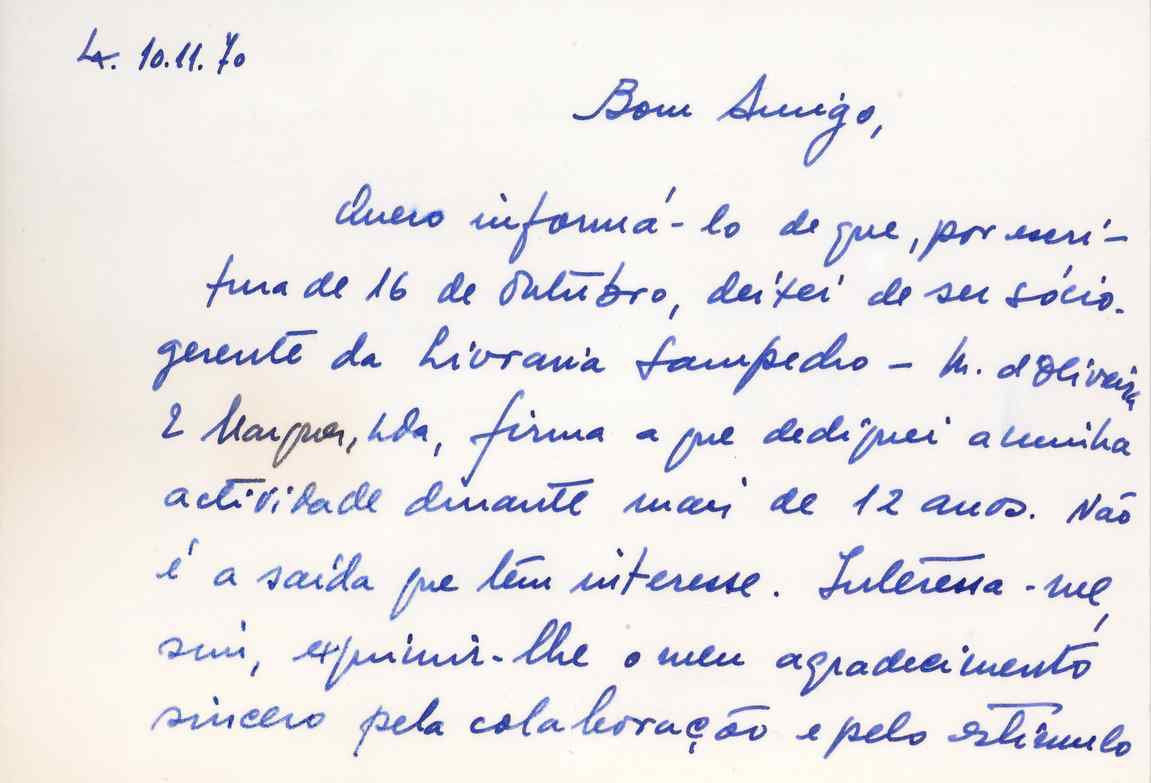 Lx. 10.11.70
Bom Amigo,
Quero informá-lo de que, por escri-
tura de 16 de Outubro, deixei de ser sócio-
gerente da Livraria Sampedro - M. d'Oliveira
& Marques, Lda, firma a que dediquei a minha
actividade durante mais de 12 anos. Não
é a saída que tem interesse. Interessa-me,
sim, exprimir-lhe o meu agradecimento
sincero pela colaboração e pelo estímulo